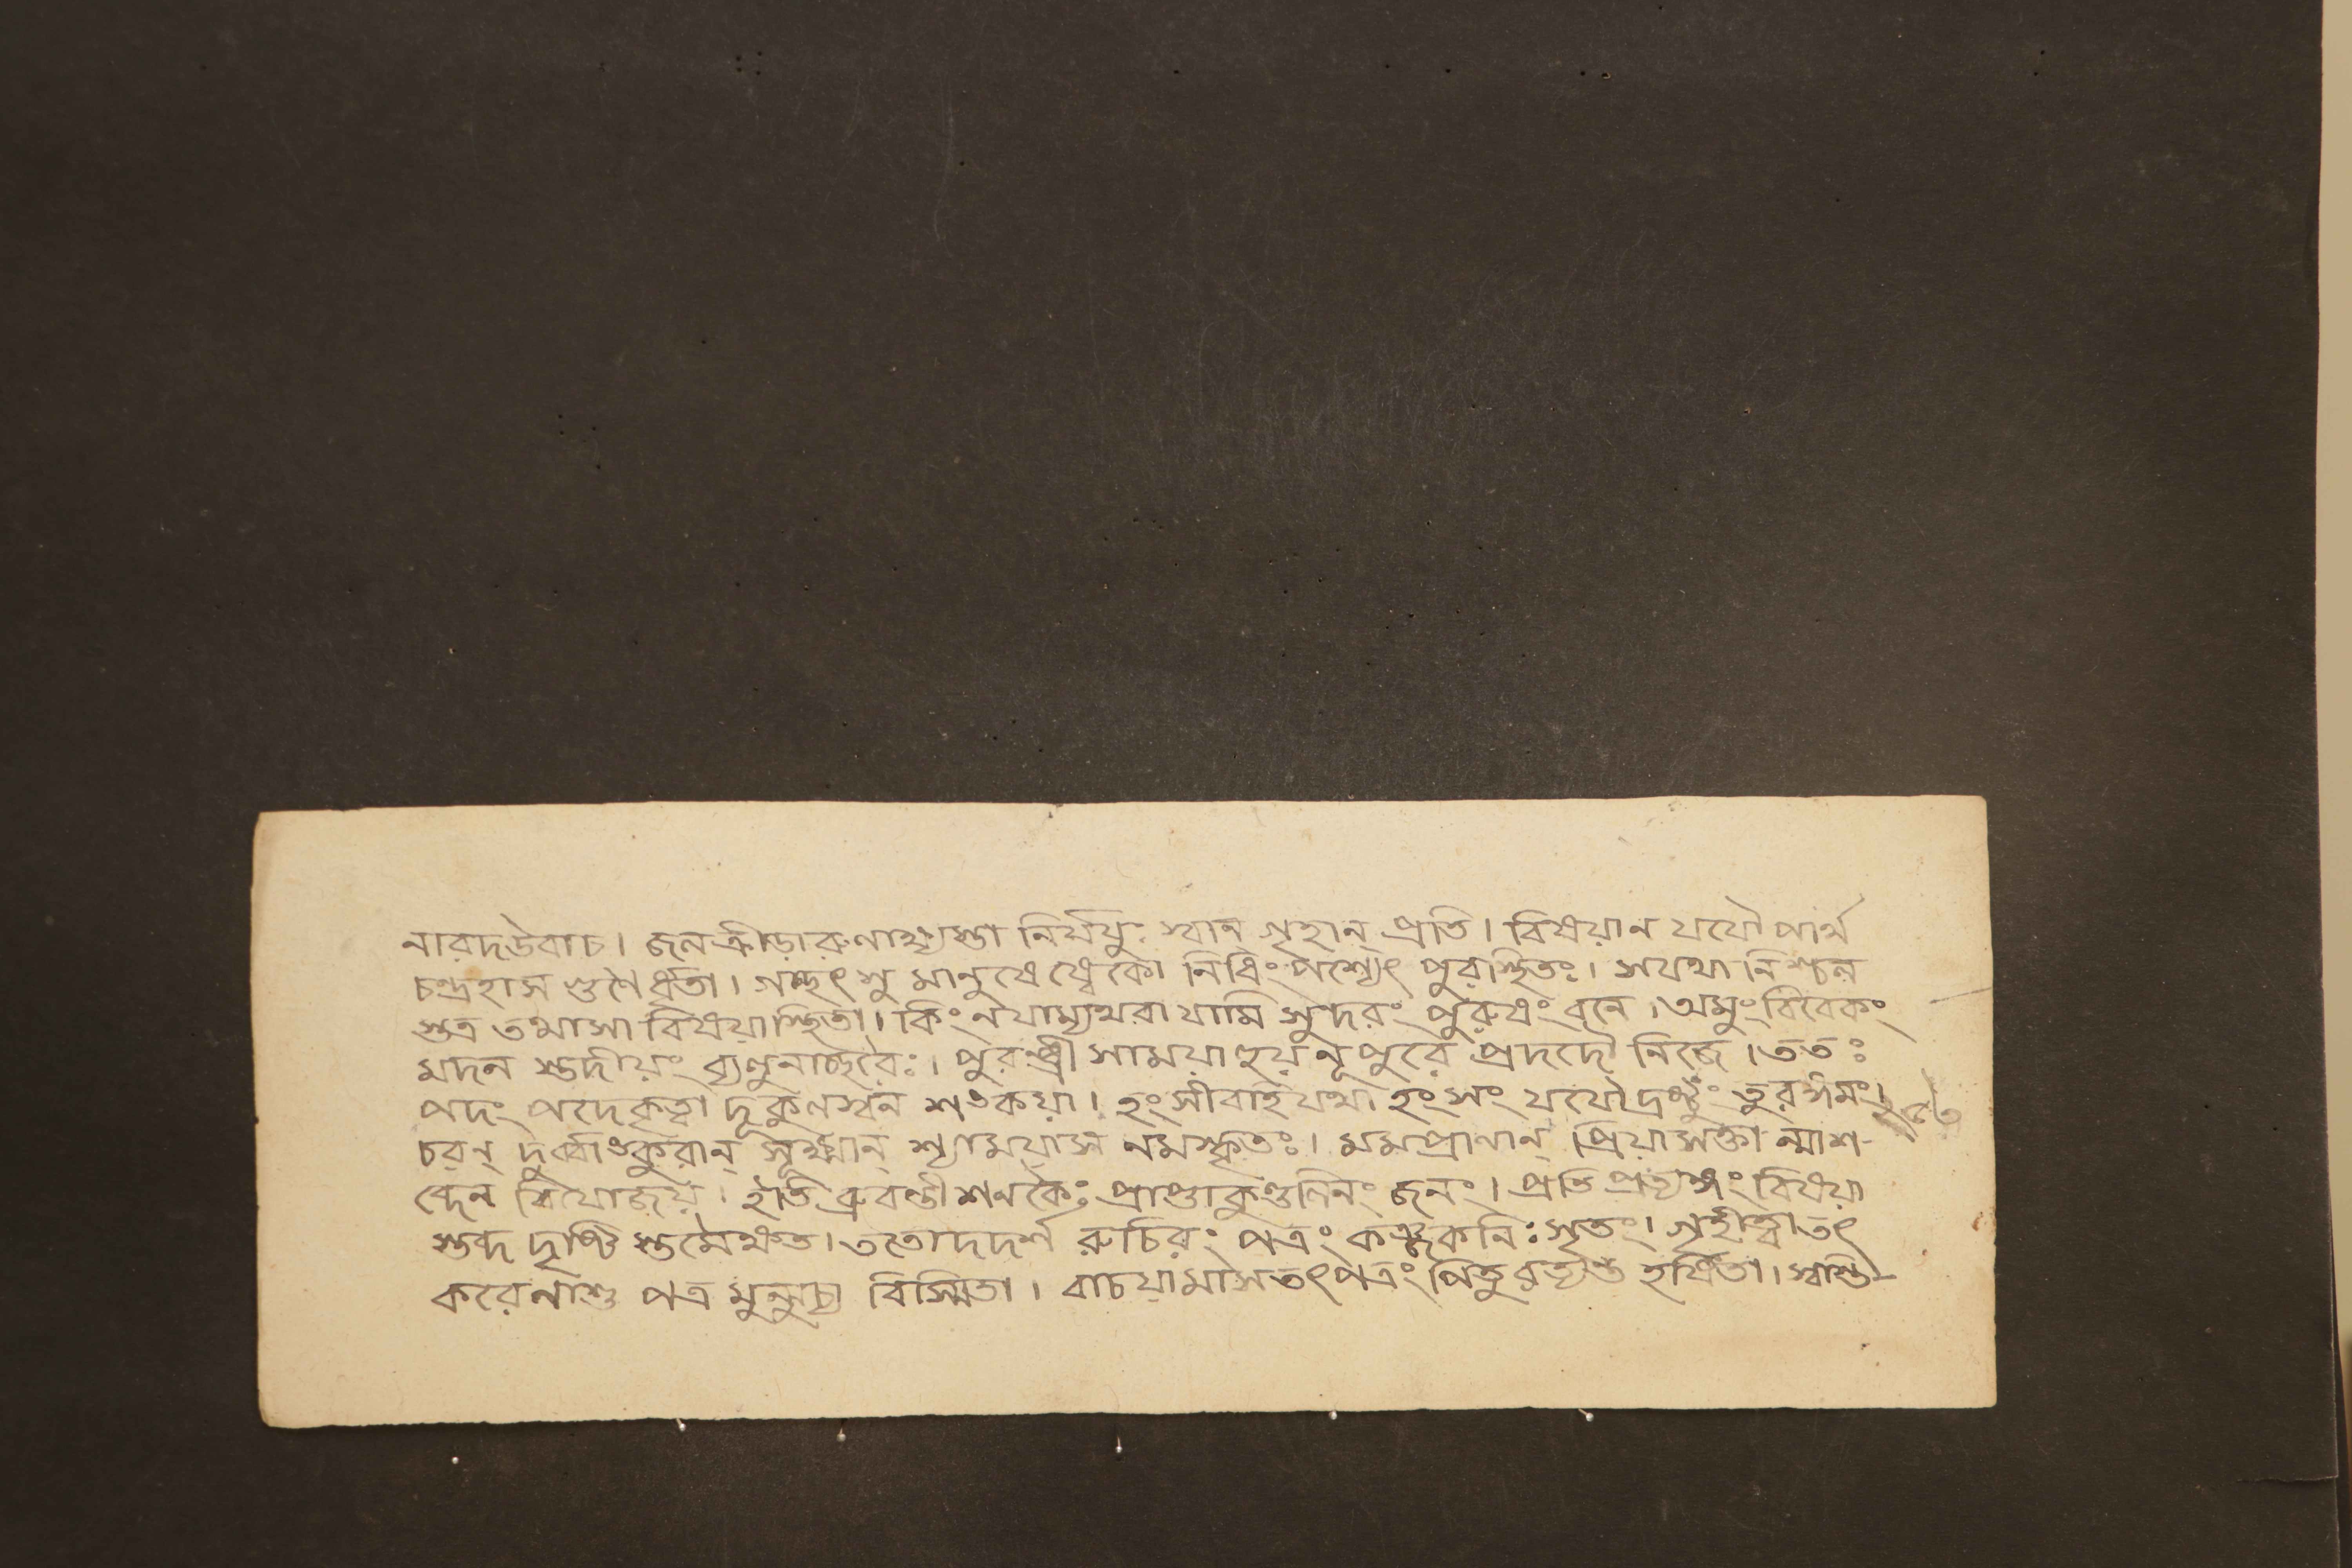 নারদউবাচ। জলক্রীড়ারুণাক্ষ্যস্তা নির্যযুঃ স্বান গৃহান্ প্রতি। বিষয়ান যযৌ পার্থ
চন্দ্রহাস গুণৈর্ধৃতা। গচ্ছৎসু মানুষেষ্বেকো নিধিং পশ্যেৎ পুরঃস্থিতং। সযথা নিশ্চল
স্তত্র তথাসা বিষয়াস্থিতা। কিং নযাম্যথবা যামি সুন্দরং পুরুষং বনে। অমুং বিবেকং
মদন স্তদীয়ং ব্যলুনাচ্ছরৈঃ। পুরন্ধ্রী সাময়া হূয় নূপুরে প্রদদৌ নিজে। ততঃ
পদং পদেকৃত্বা দূকুলস্বন শঙকয়া। হংসীবাই যথা হংসং যযৌদ্রষ্টুং তুরঙ্গমং।
চরন্ দুর্ব্বাঙকুরান্ সূক্ষ্মান্ শ্যাময়াস নমস্কৃতঃ। মমপ্রাণান্ প্রিয়াসক্তা ন্মাশ-
ব্দেন বিযোজয়। ইতি ব্রুবন্তী শনকৈঃ প্রাপ্তাকুণ্ডলিনং জনং। প্রতি প্রত্যঙ্গং বিষয়া
স্তব্দ দৃষ্টি স্তমৈক্ষত। ততোদদর্শ রুচিরং পত্রং কঞ্চুকনিঃসৃতং। গৃহীত্বাতৎ
করেনাশু পত্র মুন্মুচ্য বিস্মিতা। বাচয়ামাসতৎপত্রং পিতুরত্যন্ত হর্ষিতা। স্বস্তী-